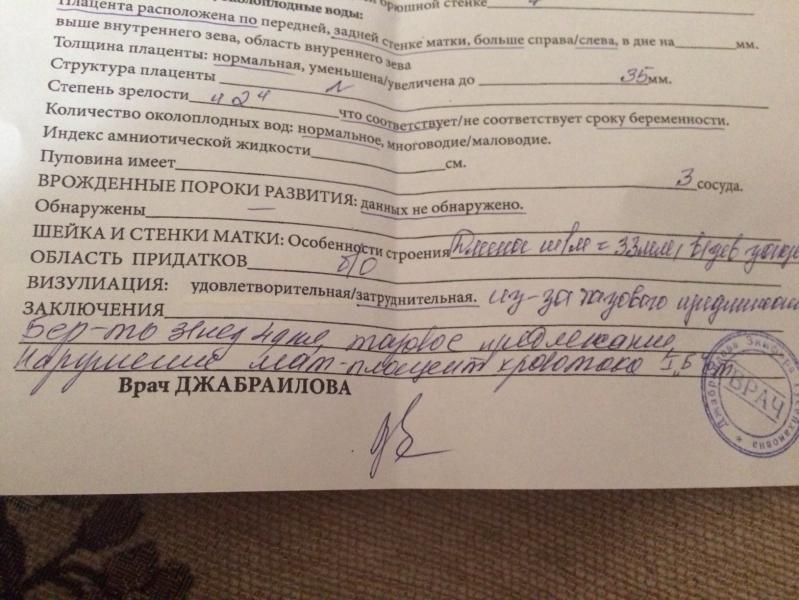 околоплодные воды:
брюшной стенке
Плацента расположена по передней, задней стенке матки, больше справа/слева, в дне на мм.
выше внутреннего зева, область внуреннего зева
Толщина плаценты: нормальная, уменьшена/увеличена до 35мм.
Структура плаценты N
Степень зрелости что соответствует/не соответствует сроку беременности.
Количество околоплодных вод: нормальное, многоводие/маловодие.
Индекс амниотической жидкости см.
Пуповина имеет 3 сосуда.
ВРОЖДЕННЫЕ ПОРОКИ РАЗВИТИЯ: данных не обнаружено.
Обнаружены —
ШЕЙКА И СТЕНКИ МАТКИ: Особенности строения = 33мм,
ОБЛАСТЬ ПРИДАТКОВ б/о
ВИЗУЛИАЦИЯ: удовлетворительная/затруднительная. из-за тазового
ЗАКЛЮЧЕНИЯ
Бер-ть тазовое предлежание,
нарушение мат-плацент кровотока
Врач ДЖАБРАИЛОВА
ВРАЧ